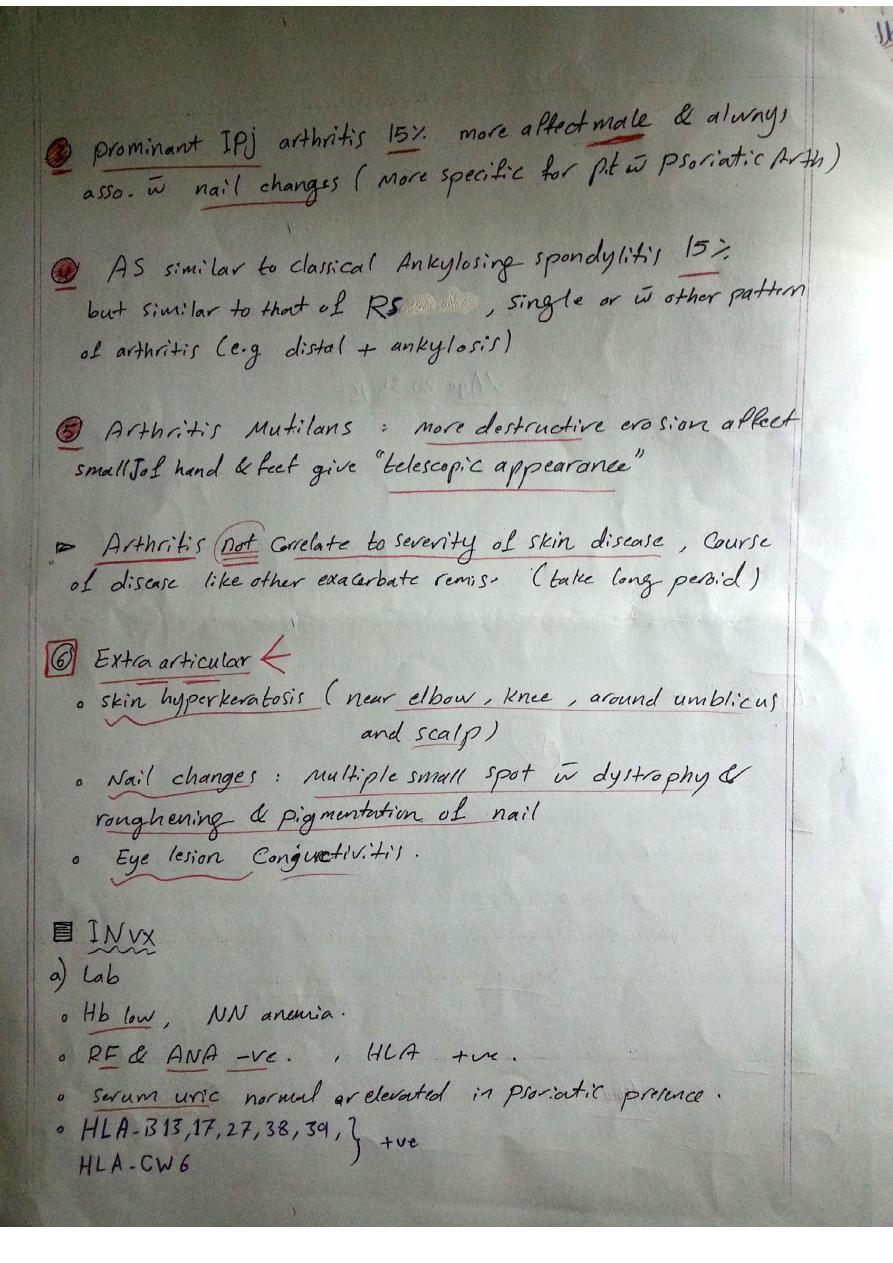 ③ prominant IPj arthritis 15% more affect male & always
asso. w̄ nail changes ( more specific for p.t w̄ psoriatic Arth)
④ AS similar to classical Ankylosing spondylitis 15%
but similar to that of RS , single or w̄ other pattern
of arthritis (e.g distal + ankylosis)
⑤ Arthritis Mutilans : more destructive erosion affect
small J of hand & feet give "telescopic appearance"
Arthritis not correlate to severity of skin disease , course
of disease like other exacerbate remis. (take long peroid)
⑥ Extra articular
skin hyperkeratosis ( near elbow , knee , around umblicus
and scalp)
Nail changes : Multiple small spot w̄ dystrophy &
roughening & pigmentation of nail
Eye lesion Conjunctivitis .
INVX
a) Lab
Hb low , NN anemia .
RF & ANA -ve . , HLA +ve .
serum uric normal or elevated in psoriatic presence .
HLA-B13,17,27,38,39, } +ve
HLA-CW6